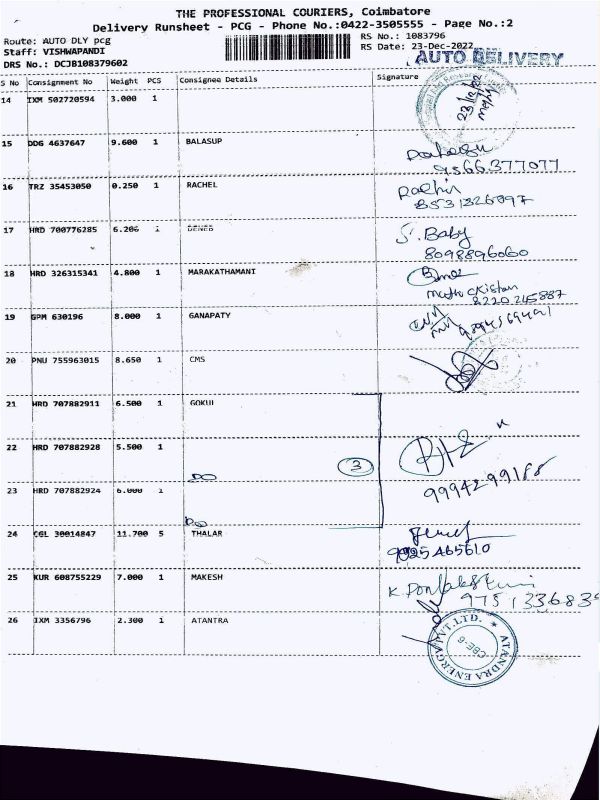 THE PROFESSIONAL COURIERS, Coimbatore
Delivery Runsheet - PCG - Phone No.:0422-3505555 - Page No.:2
Route: AUTO DLY pcg
RS No.: 1083796
Staff: VISHWAPANDI
RS Date: 23-Dec-2022
AUTO DELIVERY
DRS No.: DCJB108379602
S No Consignment No Weight PCS Consignee Details Signature
14 IXM 502720594 3.000 1
23/12/22
15 DDG 4637647 9.600 1 BALASUP
9566377077
16 TRZ 35453050 0.250 1 RACHEL
8531326097
17 HRD 700776285 6.206 1
S. Baby
8098896060
18 HRD 326315341 4.800 1 MARAKATHAMANI
8220215887
19 GPM 630196 8.000 1 GANAPATY
20 PNU 755963015 8.650 1 CMS
21 HRD 707882911 6.500 1 GOKUL
22 HRD 707882928 5.500 1
DO
3
9994299188
23 HRD 707882924 6.000 1
DO
24 CGL 30014847 11.700 5 THALAR
9025465610
25 KUR 608755229 7.000 1 MAKESH
975133683
26 IXM 3356796 2.300 1 ATANTRA
ATANDRA ENERGY PVT.LTD.
CBE-6